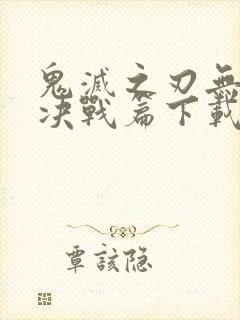 鬼滅之刃無
決戰篇下載
覃該隐